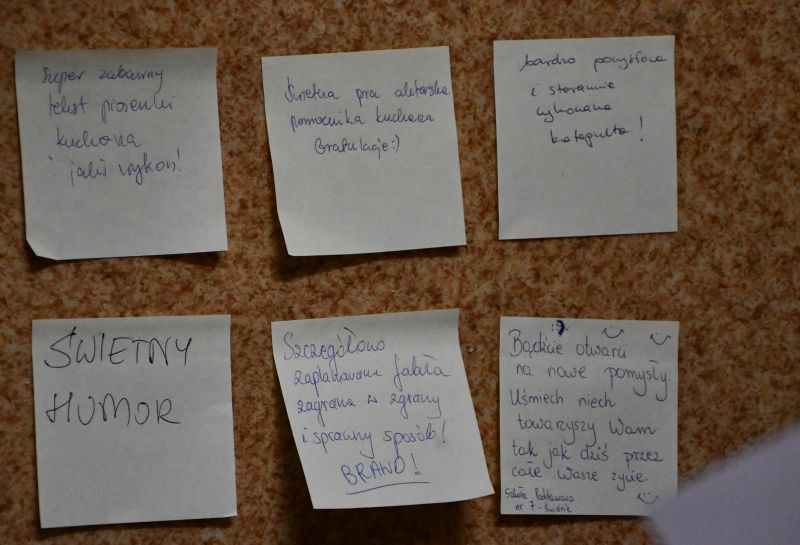 Super zabawny
tekst piosenki
kucharza
i jakie wykon!
Świetna gra aktorska
pomocnika kucharza
Gratulacje :)
bardzo pomysłowa
i starannie
wykonana
katapulta!
ŚWIETNY
HUMOR
Szczegółowo
zaplanowana fabuła
zagrana w zgrany
i sprawny sposób!
BRAWO!
Bądźcie otwarci
na nowe pomysły.
Uśmiech niech
towarzyszy Wam
tak jak dziś przez
całe Wasze życie.
Szkoła Podstawowa
nr 7 - Świdnik